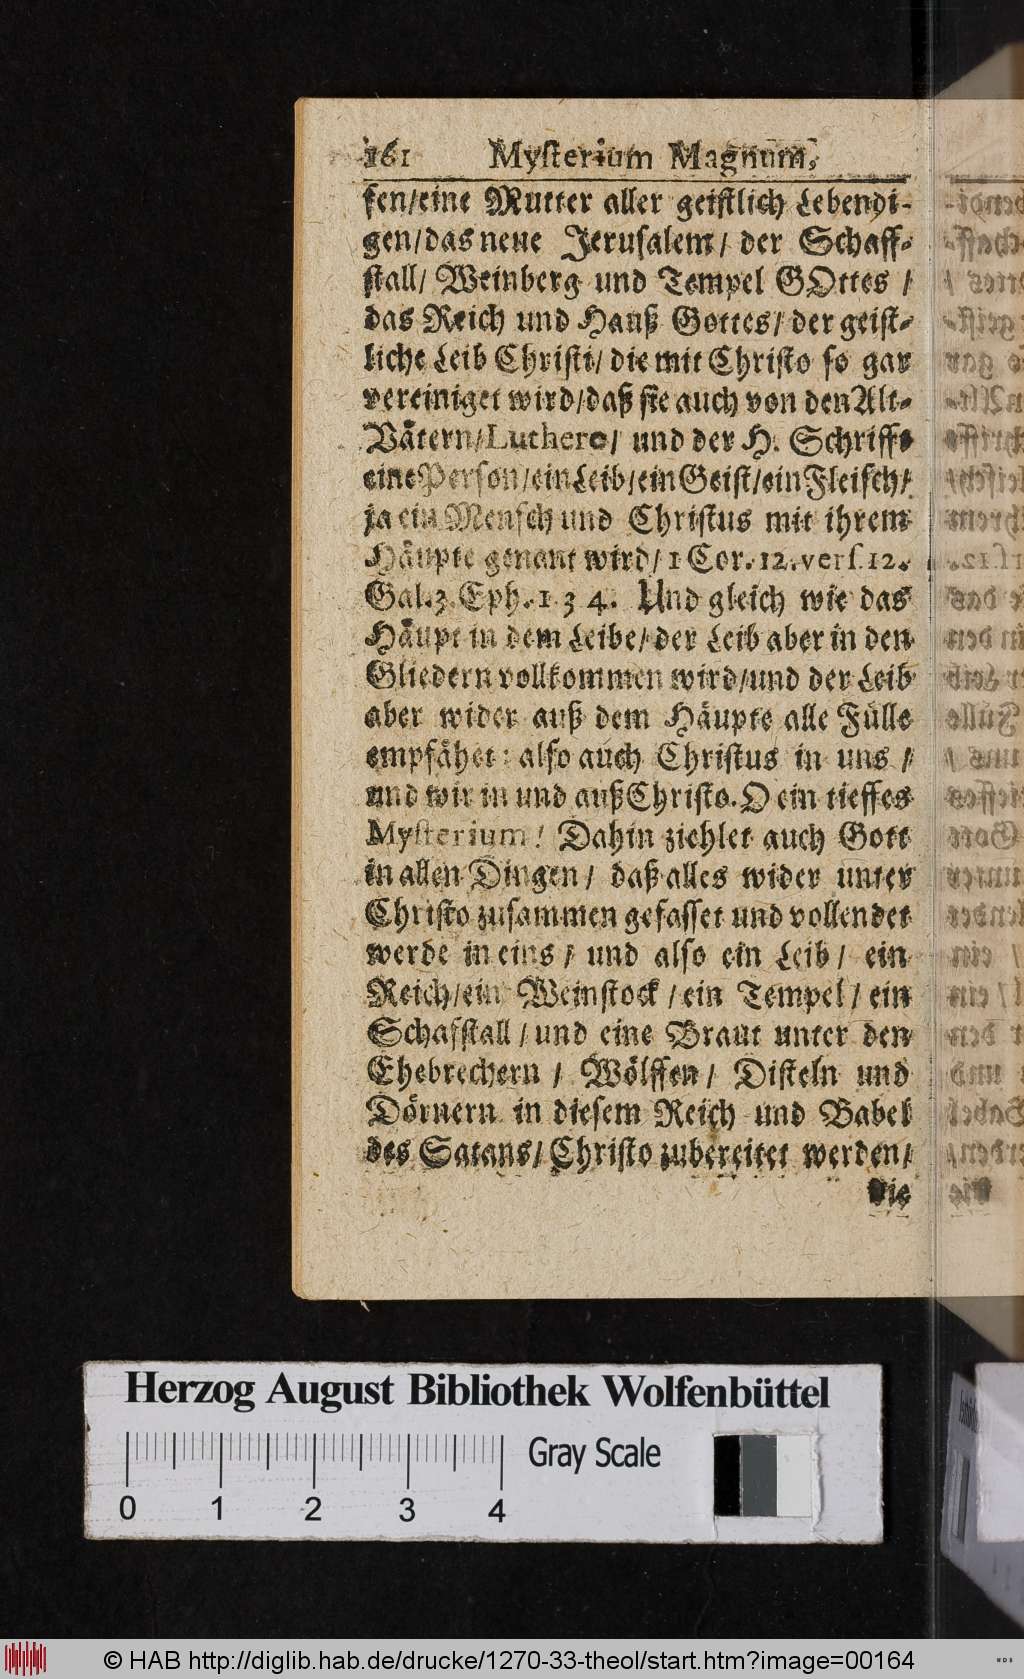 161 Mysterium Magnum.
sen/eine Mutter aller geistlich Lebendi-
gen/das neue Jerusalem/ der Schaff-
stall/ Weinberg und Tempel GOttes /
das Reich und Hauß Gottes/ der geist-
liche Leib Christi/ die mit Christo so gar
vereiniget wird/daß sie auch von den Alt-
Vätern/Luthero/ und der H. Schrifft
eine Person/ein Leib/ein Geist/ein Fleisch/
ja ein Mensch und Christus mit ihrem
Häupte genant wird/ 1 Cor. 12. vers. 12.
Gal. 3. Eph. 1 3 4. Und gleich wie das
Häupt in dem Leibe/ der Leib aber in den
Gliedern vollkommen wird/und der Leib
aber wider auß dem Häupte alle Fülle
empfähet: also auch Christus in uns /
und wir in und auß Christo. O ein tieffes
Mysterium! Dahin ziehlet auch Gott
in allen Dingen/ daß alles wider unter
Christo zusammen gefasset und vollendet
werde in eins / und also ein Leib/ ein
Reich/ein Weinstock /ein Tempel/ ein
Schafstall /und eine Braut unter den
Ehebrechern / Wölffen/ Disteln und
Dörnern in diesem Reich und Babel
des Satans/ Christo zubereitet werden/
die
Herzog August Bibliothek Wolfenbüttel
Gray Scale
0 1 2 3 4
© HAB http://diglib.hab.de/drucke/1270-33-theol/start.htm?image=00164